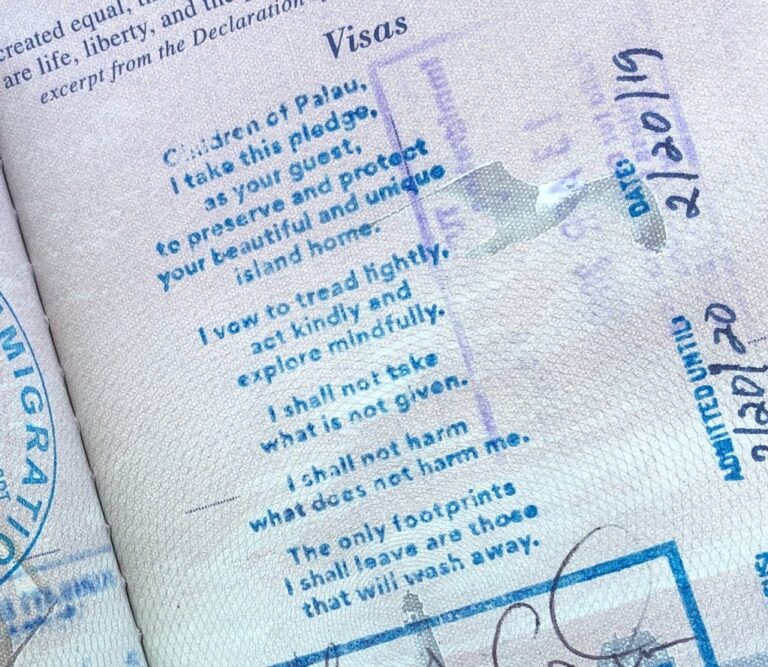 created equal,
are life, liberty, and the
excerpt from the Declaration
Visas
Children of Palau,
I take this pledge,
as your guest,
to preserve and protect
your beautiful and unique
island home.
I vow to tread lightly,
act kindly and
explore mindfully.
I shall not take
what is not given.
I shall not harm
what does not harm me.
The only footprints
I shall leave are those
that will wash away.
DATE: 2/20/19
ADMITTED UNTIL: 2/20/20
MIGRATIO